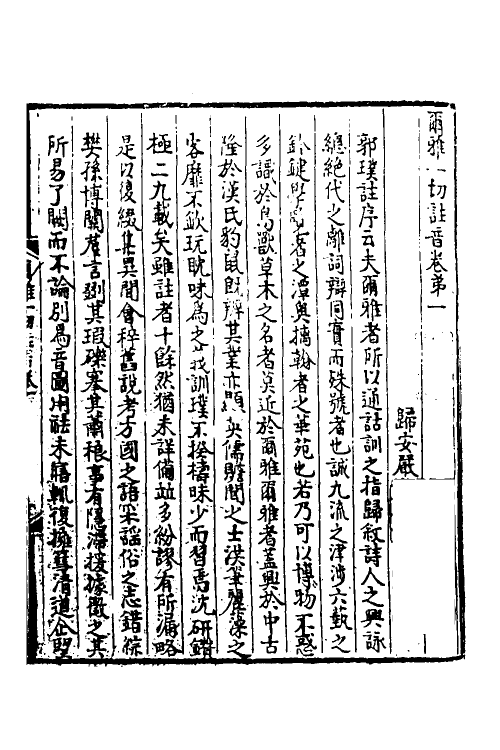 爾雅一切註音卷弟一
歸安嚴
郭璞註序云夫爾雅者所以通詁訓之指歸敘詩人之興詠
緫絕代之離詞辯同實而殊號者也誠九流之津涉六藝之
鈐鍵學覽者之潭奧摛翰者之華苑也若乃可以博物不惑
多識於鳥獸草木之名者莫近於爾雅爾雅者蓋興於中古
隆於漢氏豹鼠既辨其業亦顯英儒贍聞之士洪筆麗藻之
客靡不欽玩耽味為之義訓璞不揆檮昧少而習焉沈研鑽
極二九載矣雖註者十餘然猶未詳備竝多紛謬有所漏略
是以復綴集異聞會稡舊說考方國之語采謠俗之志錯綜
樊孫博關羣言剟其瑕礫搴其蕭稂事有隱滯援據徵之其
所易了闕而不論別為音圖用祛未寤輒復擁篲清道企望